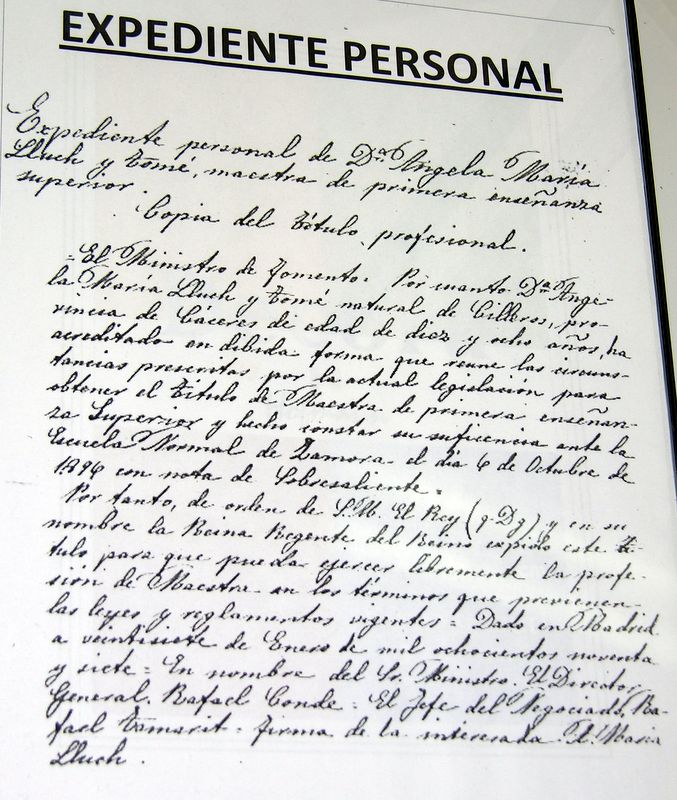 EXPEDIENTE PERSONAL
Expediente personal de Dª Angela María
Lluch y Tomé, maestra de primera enseñanza
superior.
Copia del Título profesional.
=El Ministro de Fomento. Por cuanto Dª Ange-
la María Lluch y Tomé natural de Cilleros, pro-
vincia de Cáceres de edad de diez y ocho años, ha
acreditado en dibida forma que reune las circuns-
tancias prescritas por la actual legislación para
obtener el Título de Maestra de primera enseñan-
za Superior y hecho constar su suficencia ante la
Escuela Normal de Zamora el dia 6 de Octubre de
1896 con nota de Sobresaliente.
Por tanto, de orden de S.M. El Rey (q.Dg) y en su
nombre la Reina Regente del Reino expido este Tí-
tulo para que pueda ejercer libremente la profe-
sión de Maestra en los términos que previenen
las leyes y reglamentos vigentes = Dado en Madrid
a veintisiete de Enero de mil ochocientos noventa
y siete = En nombre del Sr. Ministro. El Director
General. Rafael Conde = El Jefe del Negociado, Ra-
fael Tamarit = firma de la interesada. A. María
Lluch.